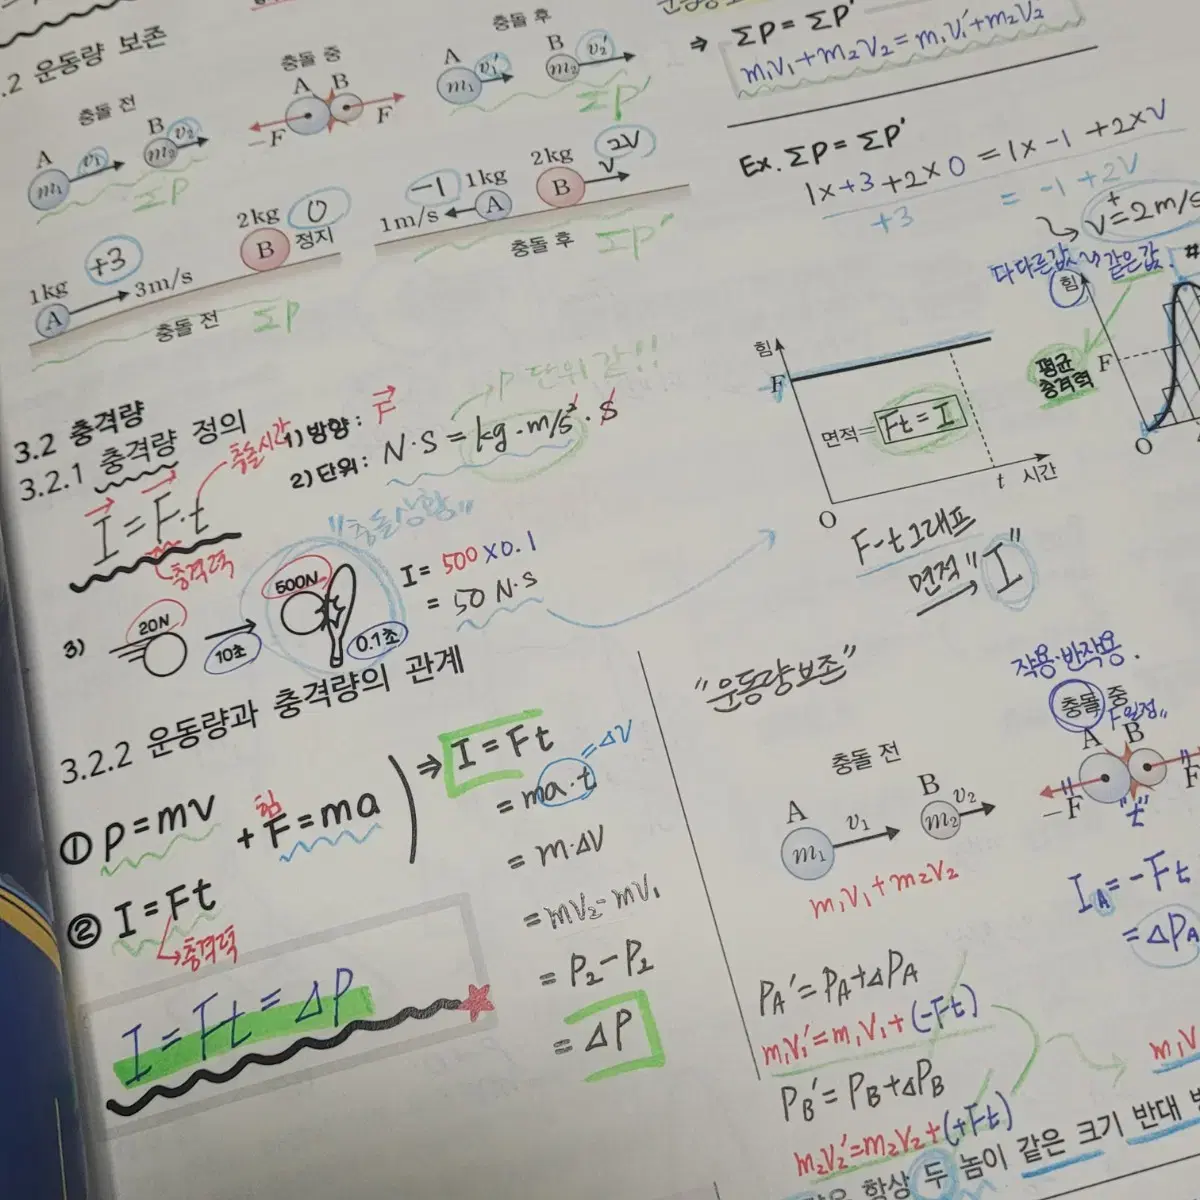 .2 운동량 보존
충돌 전
A
v₁
m₁
B
v₂
m₂
ΣP
충돌 중
A B
-F
F
충돌 후
A
v₁'
m₁
B
v₂'
m₂
ΣP
⇒ ΣP = ΣP'
m₁v₁+m₂v₂=m₁v₁'+m₂v₂'
1kg
A
+3
3m/s
2kg
0
B
정지
충돌 전
ΣP
-1
1kg
1m/s
A
2kg
2V
B
v
충돌 후
ΣP'
Ex. ΣP = ΣP'
1×+3+2×0=1×-1+2×V
+3
= -1+2V
V=+2m/s
3.2 충격량
3.2.1 충격량 정의
충돌시간
I=F·t
충격력
1) 방향: F
P 단위 같!!
2) 단위: N·S = kg·m/s²·s
3)
20N
10초
"충돌상황"
500N
0.1초
I = 500×0.1
= 50 N·s
힘
F
면적= Ft=I
O
t
시간
F-t 그래프
면적 "I"
다 다른값 같은값. #
힘
평균
충격력
F
O
3.2.2 운동량과 충격량의 관계
① P=mv + F=ma
힘
② I=Ft
충격력
⇒ I=Ft
=ma·t
=ΔV
=m·ΔV
=mV₂-mV₁
=P₂-P₂
=ΔP
I=Ft=ΔP
"운동량보존"
충돌 전
A
m₁
v₁
B
m₂
v₂
m₁v₁+m₂v₂
작용·반작용.
충돌 중
F 일정"
A B
-F
F
"t"
I_A=-Ft
=ΔP_A
P_A'=P_A+ΔP_A
m₁v₁'=m₁v₁+(-Ft)
P_B'=P_B+ΔP_B
m₂v₂'=m₂v₂+(+Ft)
m₁v
항상 두 놈이 같은 크기 반대